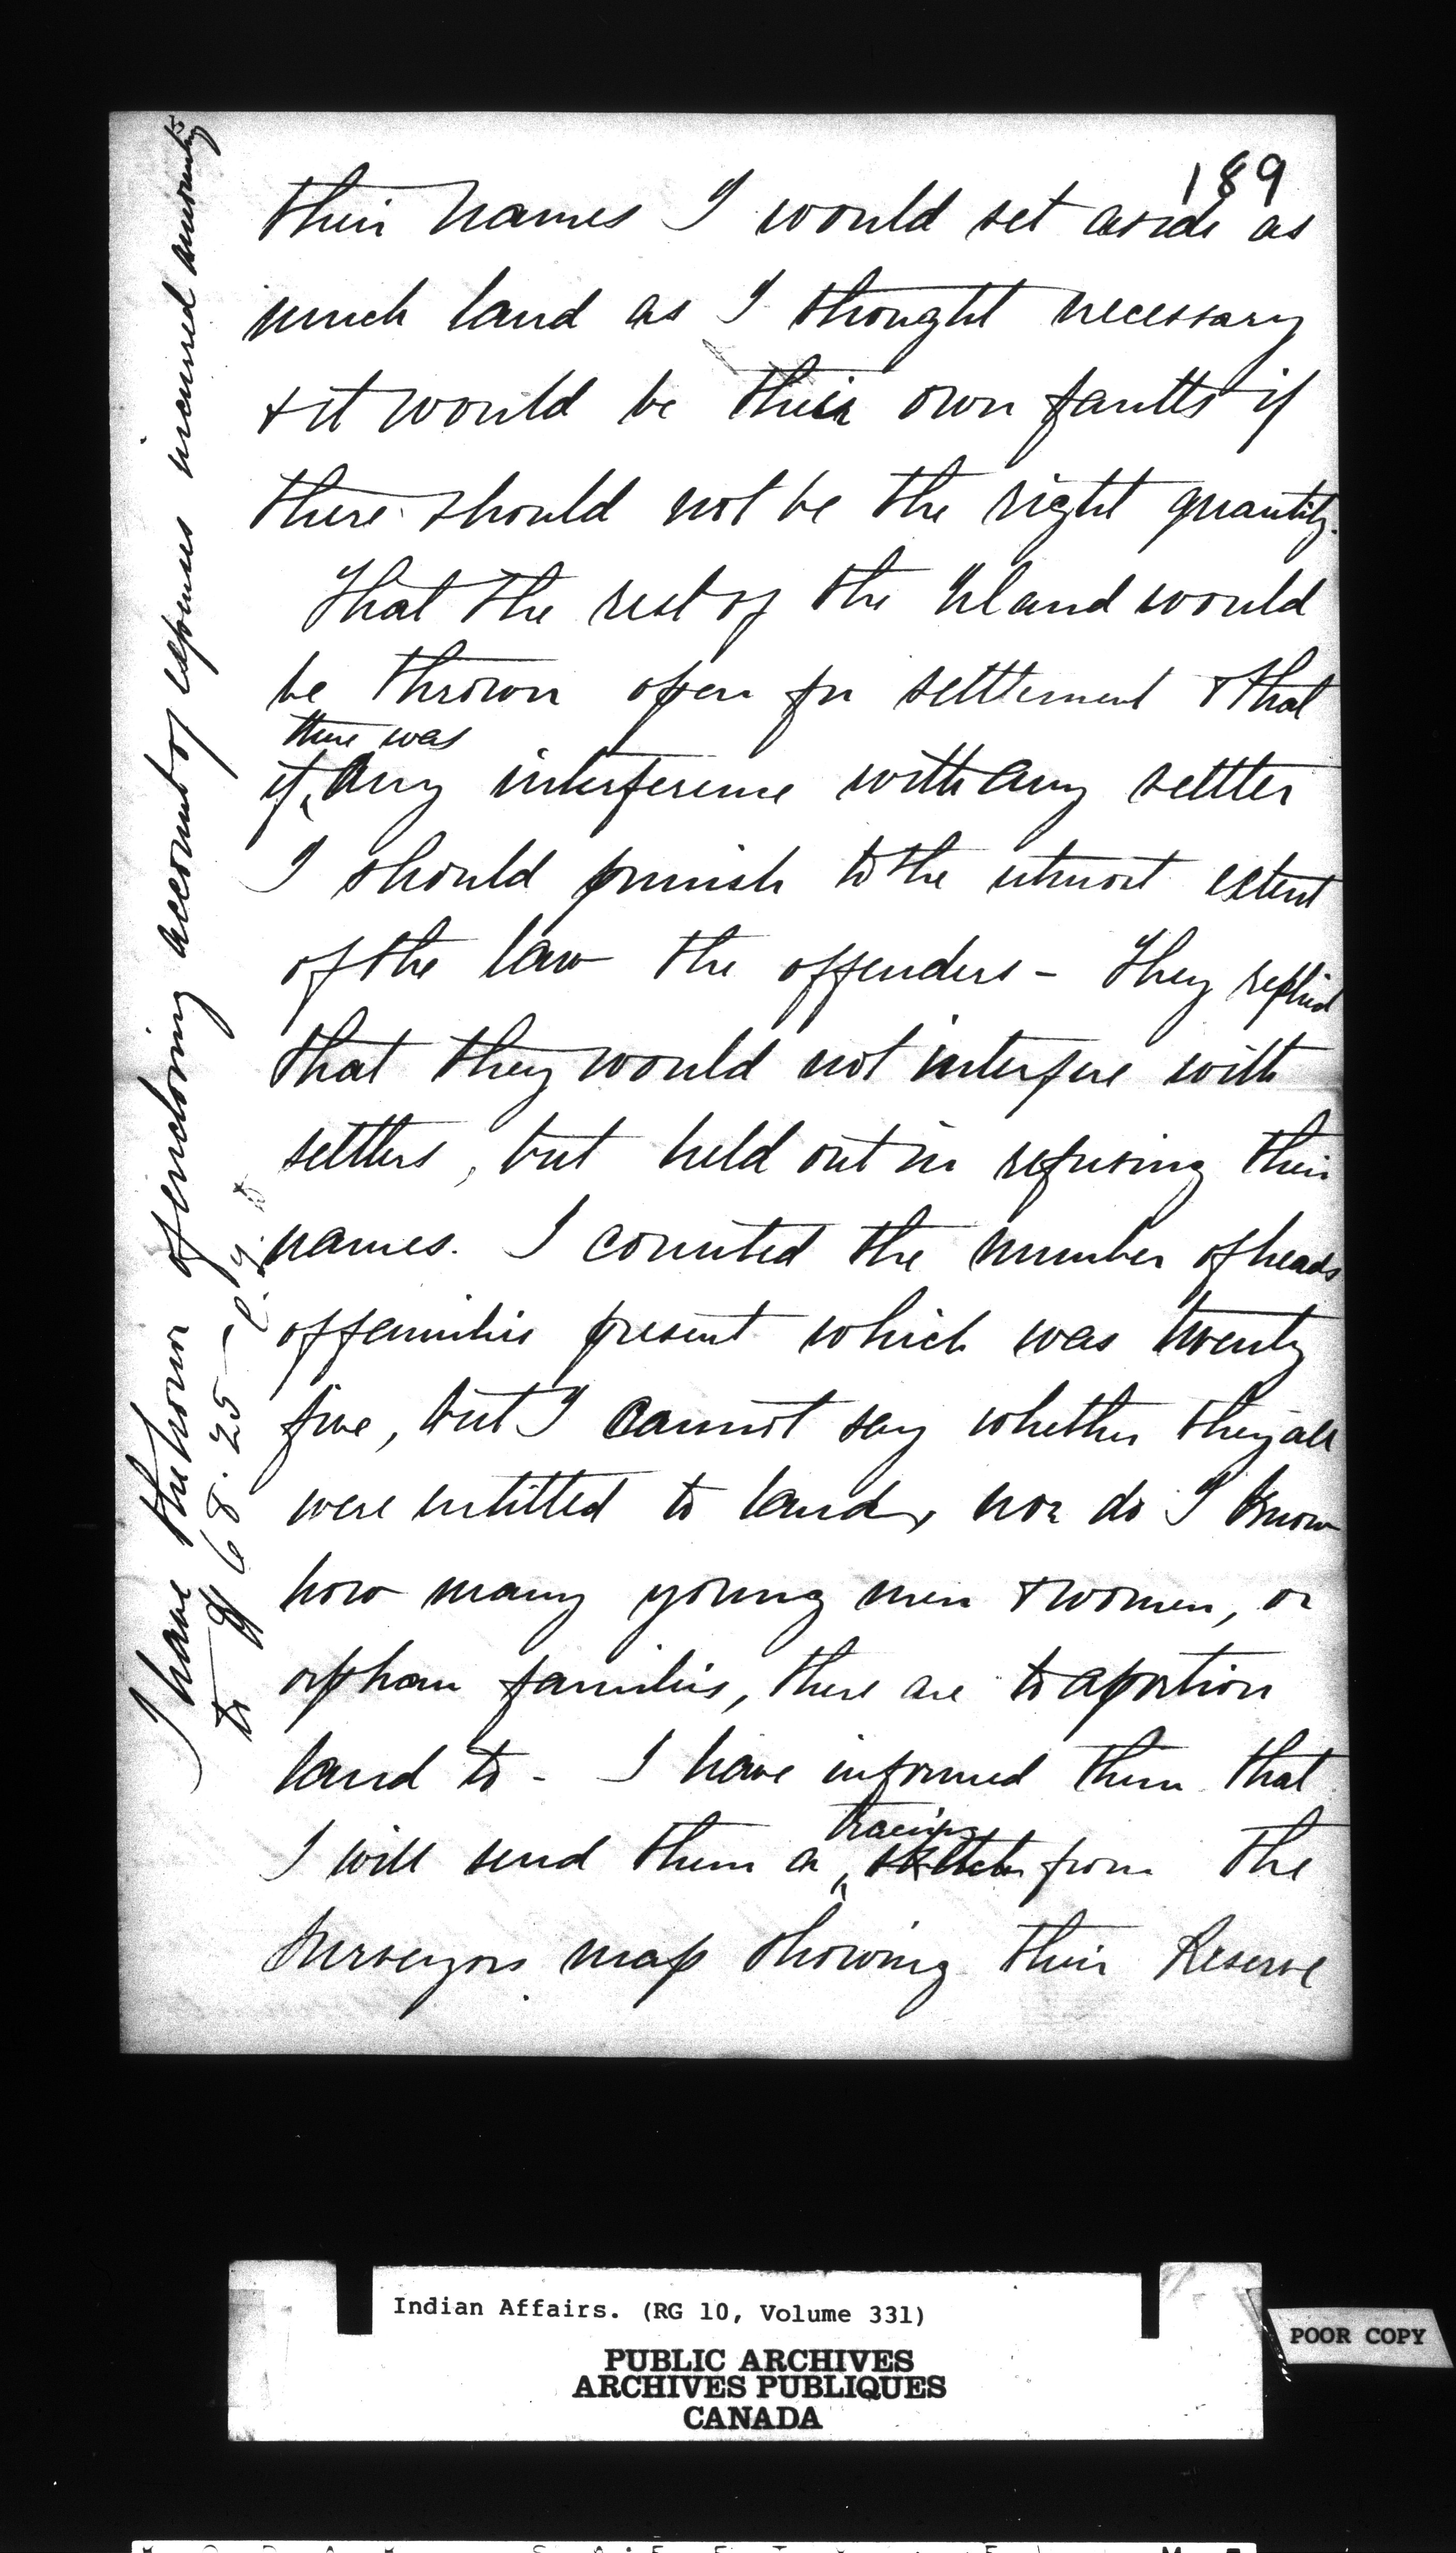 189
their names I would set aside as
much land as I thought necessary
& it would be their own faults if
there should not be the right quantity.
That the rest of the Island would
be thrown open for settlement & that
there was
if any interference with any settler
I should punish to the utmost extent
of the law the offenders - They replied
that they would not interfere with
settlers, but held out in refusing their
names. I counted the number of heads
of families present which was twenty
five, but I cannot say whether they all
were intitled to land, nor do I know
how many young men & women, or
orphan families, there are to aportion
land to - I have informed them that
tracing
I will send them a sketch from the
Surveyors map showing their Reserve
I have the honor of enclosing account of expenses incurred amounting
to $68.25
Indian Affairs. (RG 10, Volume 331)
PUBLIC ARCHIVES
ARCHIVES PUBLIQUES
CANADA
POOR COPY